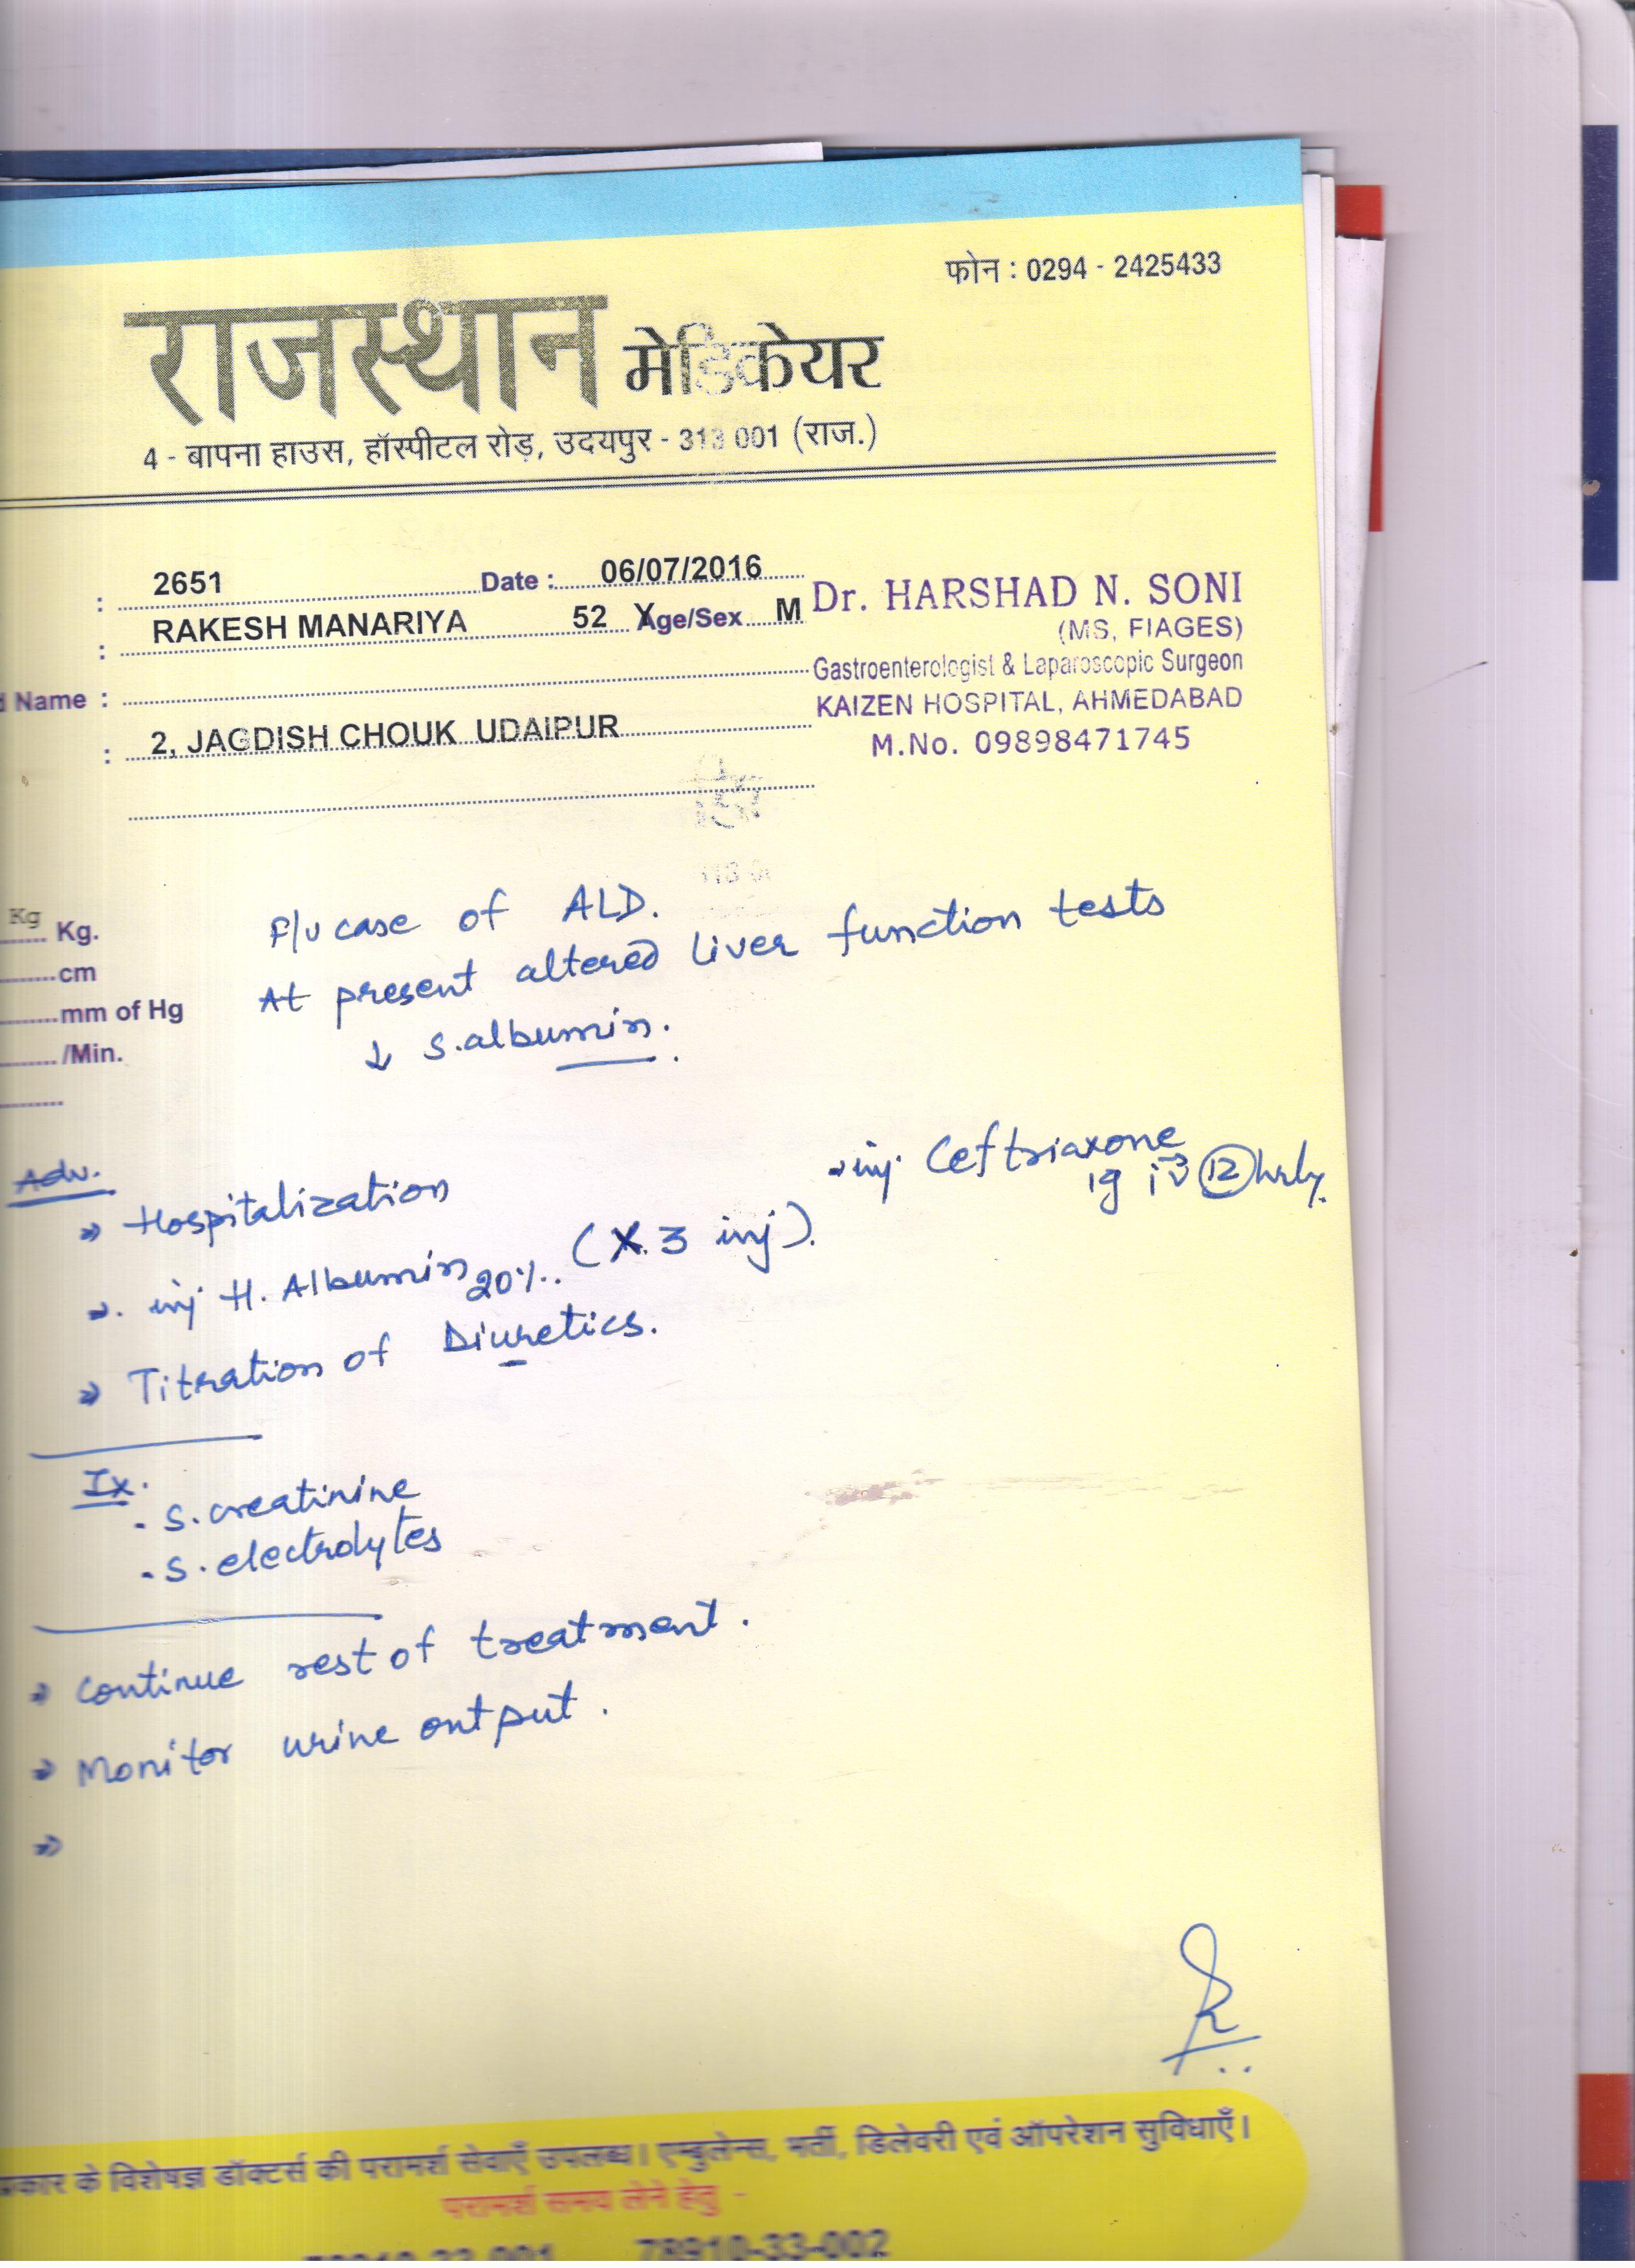 फोन : 0294 - 2425433
राजस्थान मेडिकेयर
4 - बापना हाउस, हॉस्पीटल रोड़, उदयपुर - 313 001 (राज.)
: 2651 Date : 06/07/2016
: RAKESH MANARIYA 52 Y Age/Sex M
Name :
: 2, JAGDISH CHOUK UDAIPUR
Dr. HARSHAD N. SONI
(MS, FIAGES)
Gastroenterologist & Laparoscopic Surgeon
KAIZEN HOSPITAL, AHMEDABAD
M.No. 09898471745
Kg
Kg.
cm
mm of Hg
/Min.
F/U case of ALD.
At present altered liver function tests
↓ S.albumin.
Adv.
→ Hospitalization
→ inj. Ceftriaxone
1g iv 12 hrly.
→ inj H. Albumin 20%. (X 3 inj).
→ Titration of Diuretics.
Ix.
- S. creatinine
- S. electrolytes
→ continue rest of treatment.
→ Monitor urine output.
→
के विशेषज्ञ डॉक्टर्स की परामर्श सेवाएँ उपलब्ध। एम्बुलेन्स, भर्ती, डिलेवरी एवं ऑपरेशन सुविधाएँ।
परामर्श समय लेने हेतु -
78910-33-001 78910-33-002